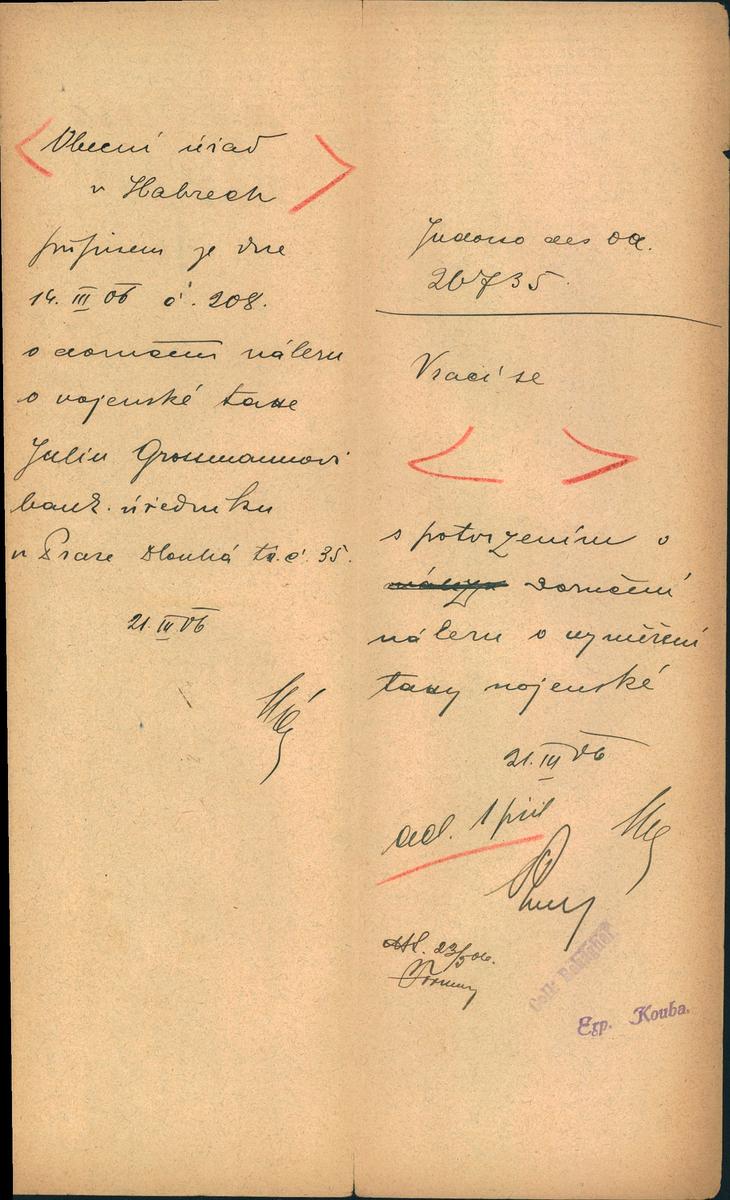 Obecní úřad
v Habrech
přípisem ze dne
14. III 06 č. 208.
o doručení nálezu
o vojenské taxe
Juliu Grossmannovi
bank. úředníku
v Praze Dlouhá tř. č. 35.
21. III 06
Indorso des ad.
26735.
Vrací se
s potvrzením o
doručení
nálezu o vyměření
taxy vojenské
21. III 06
ad. 1 příl
23/3 06.
Coll:
Exp. Kouba.